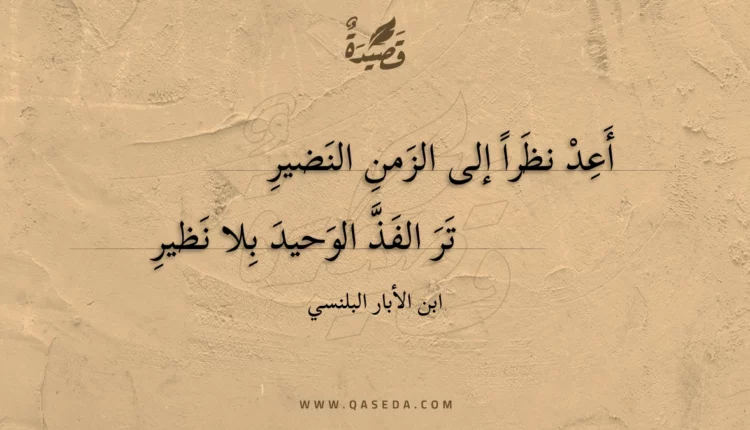 قَصِيدَةٌ
أَعِدْ نظَراً إلى الزَمنِ النَضيرِ
تَرَ الفَذَّ الوَحيدَ بِلا نَظيرِ
ابن الأبار البلنسي
WWW.QASEDA.COM